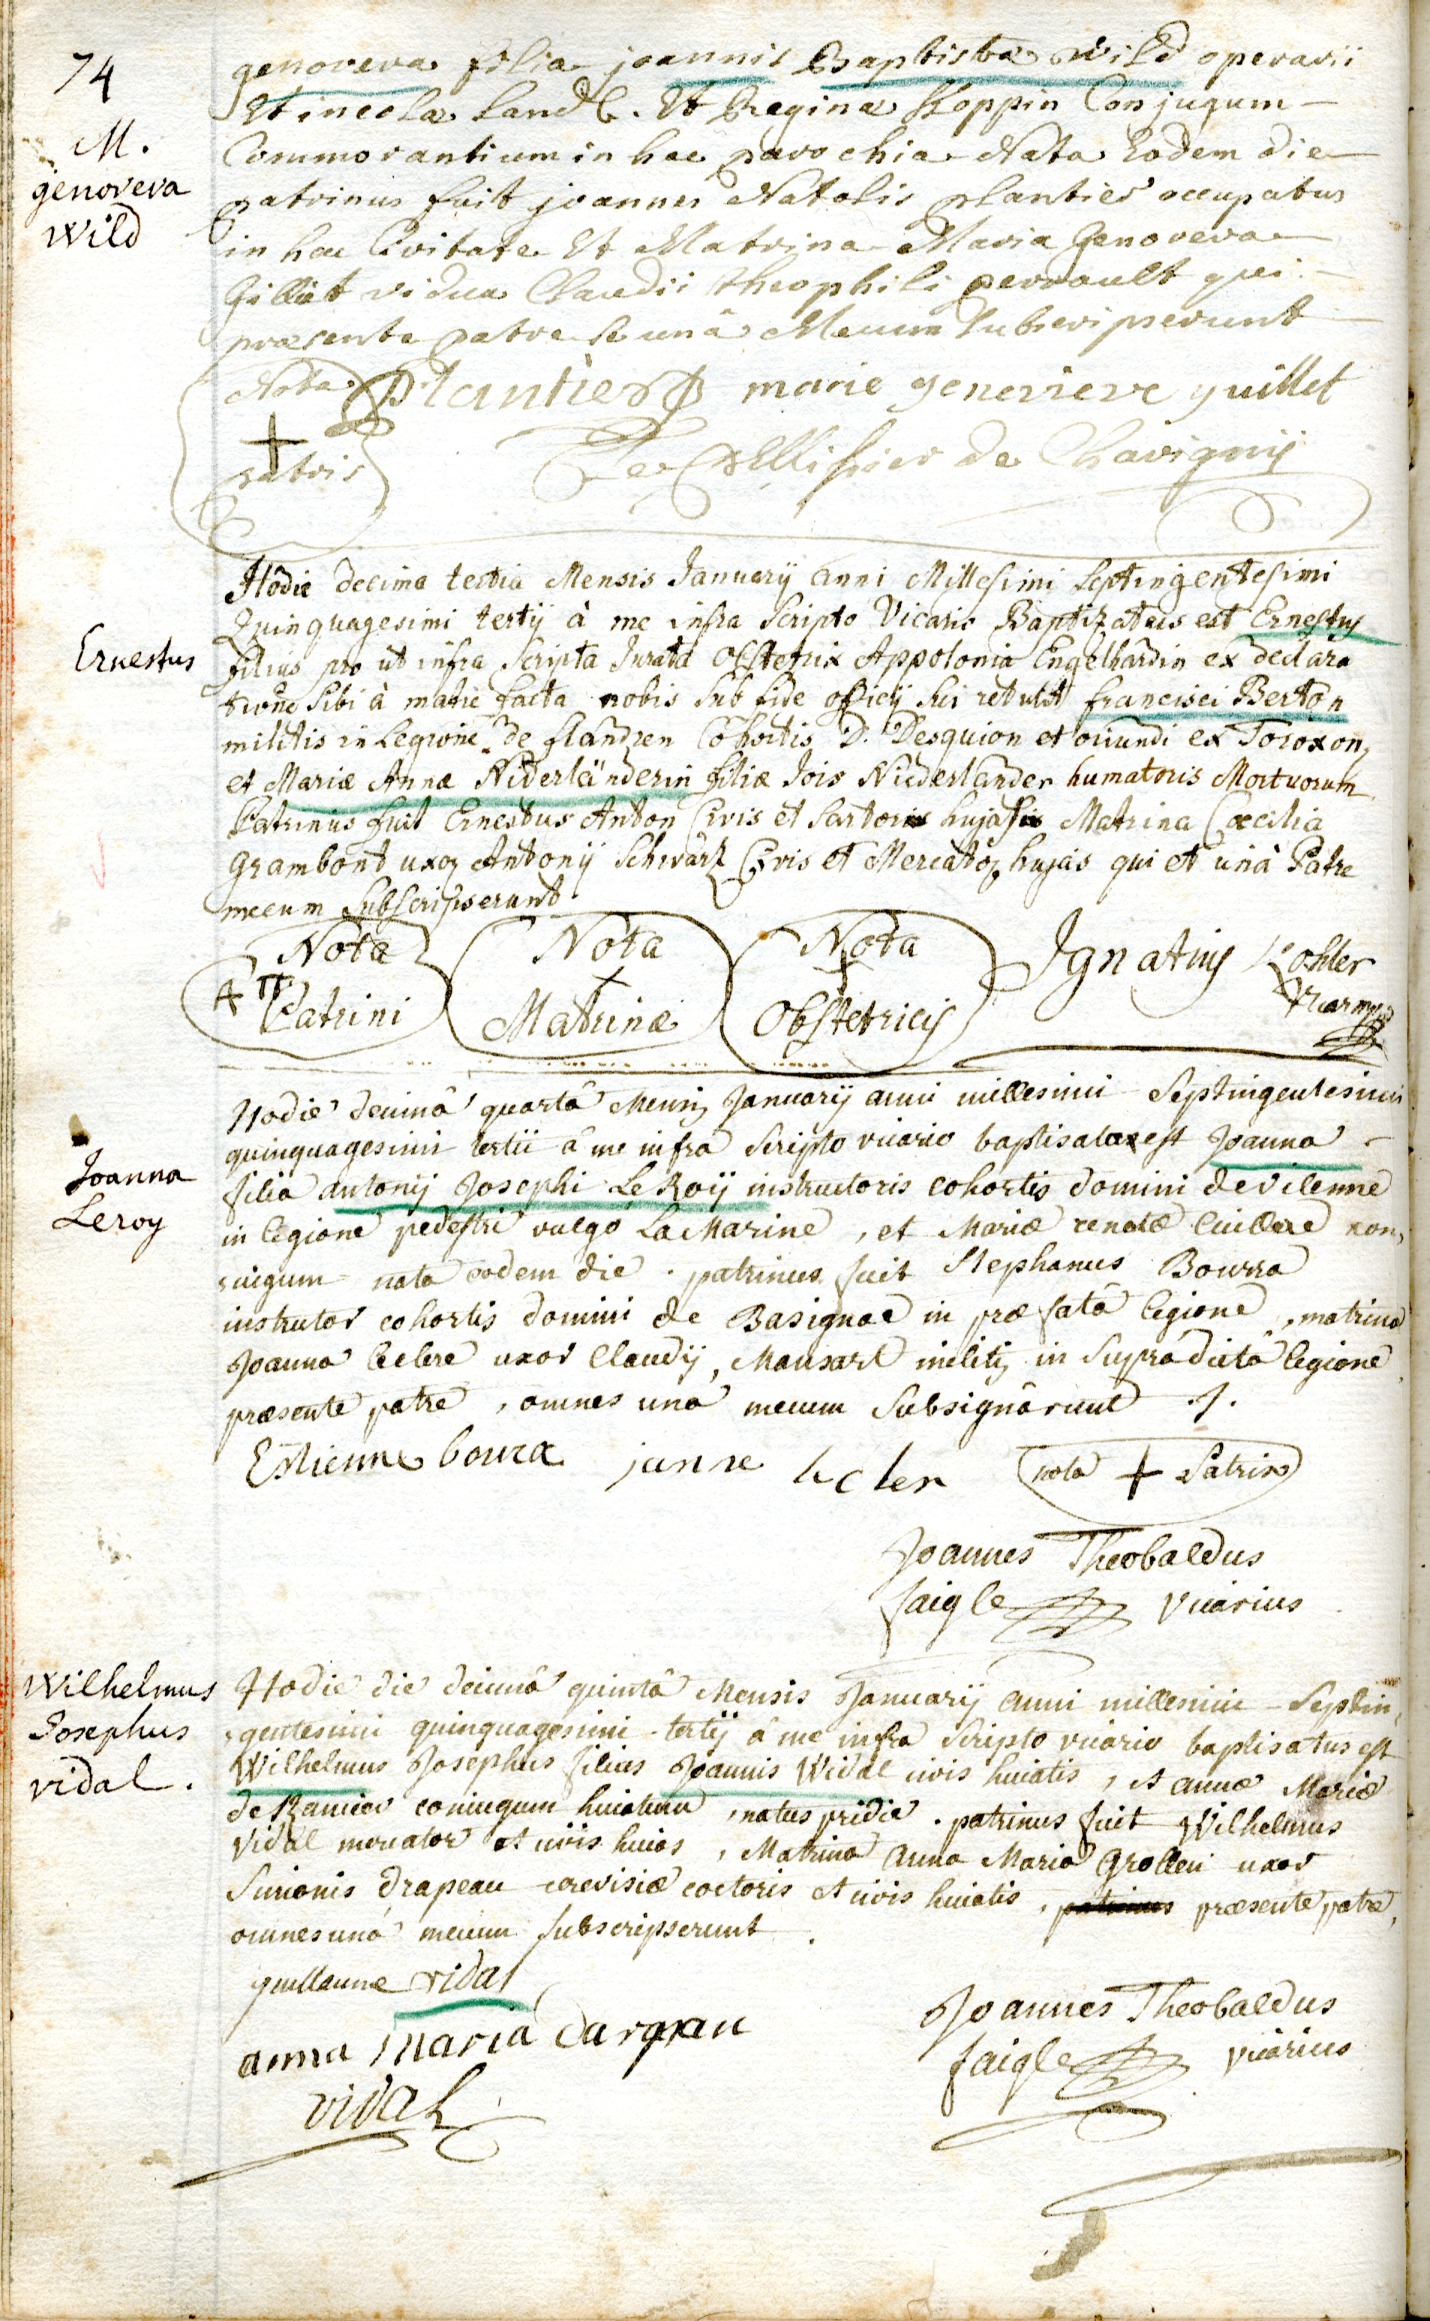 74
M.
genoveva
Wild
genoveva filia joannis Baptistæ Wild operarii
Et incolæ Land C. Et Reginæ Koppin Conjugum
Commorantium in hac parochia Nata Eodem die
patrinus fuit joannes Natalis plantier occupatus
in hac Civitate Et Matrina Maria Genoveva
Gilliet vidua Claudii theophili perrault qui
præsente patre se unâ Mecum Subscripserunt
Nota
patris
Plantier marie genevieve guillet
Le Pellissier de Chavigny
Ernestus
Hodie decima tertia Mensis Januarij anni Millesimi Septingentesimi
Quinquagesimi tertij à me infra Scripto Vicario Baptizatus est Ernestus
filius pro ut infra Scripta Jurata Obstetrix Appolonia Engelhardin ex declara
tione Sibi à matre facta nobis Sub fide officij Sui retulit francisci Berton
militis in Legione de flandren Cohortis D. Desquion et oriundi ex
et Mariæ Annæ Niderländerin filiæ Jois Niederlander humatoris Mortuorum
Patrinus fuit Ernestus Anton Civis et Sartoris Matrina Cæcilia
Grambont uxor Antonij Schwartz Civis et hujas qui et unà Patre
mecum Subscripserunt.
Nota
Patrini
Nota
Matrinæ
Nota
Obstetricis
Ignatius Kohler
Joanna
Leroy
Hodie decimâ quartâ Mensis Januarij anni millesimi Septingentesimi
quinquagesimi tertii â me infra Scripto vicario baptisata est Joanna
filia antonij Josephi Le Roij instructoris cohortis domini de vilenne
in legione pedestri vulgo La Marine, et Mariæ renatæ con,
iugum nata eodem die. patrinus fuit Stephanus Bourra
instrutor cohortis domini de Basignac in præfatâ legione, matrina
Joanna leclere uxor Claudij, Mansart militis in Supradictâ legione
præsente patre, omnes unâ mecum Subsignârunt
Estienne boura janne lecler
nota patris
Joannes Theobaldus
faigle vicarius
Wilhelmus
Josephus
vidal.
Hodie die decimâ quintâ Mensis Januarij anni millesimi Septin,
gentesimi quinquagesimi tertij â me infra Scripto vicario baptisatus est
Wilhelmus Josephus filius Joannis Widal civis huiatis, et annæ Mariæ
coniugum huiatum, natus pridie. patrinus fuit Wilhelmus
Vidal mercator et civis huias, Matrina anna Maria Grolleri uxor
Simonis Drapeau cerevisiæ coctoris et civis huiatis, patrinus præsente patre,
omnes unâ mecum subscripserunt.
guillaume vidal
anna Maria
vidal
Joannes Theobaldus
faigle vicarius